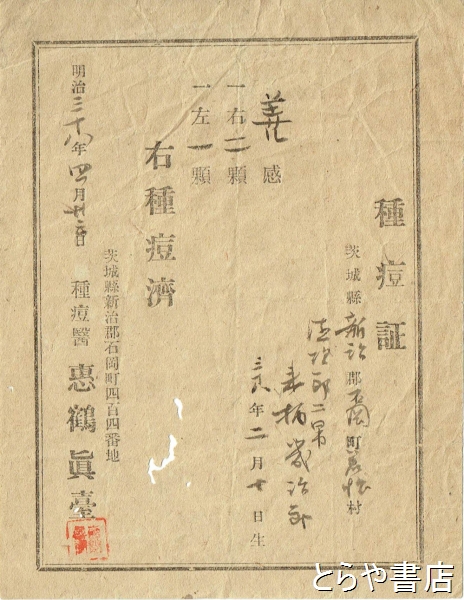 種痘証
茨城縣新治郡石岡町村
治郎二男
幾治郎
三八年二月十日生
善感
一右二顆
一左一顆
右種痘濟
明治三十八年四月廿日
茨城縣新治郡石岡町四百四番地
種痘醫 惠鶴眞臺
とらや書店